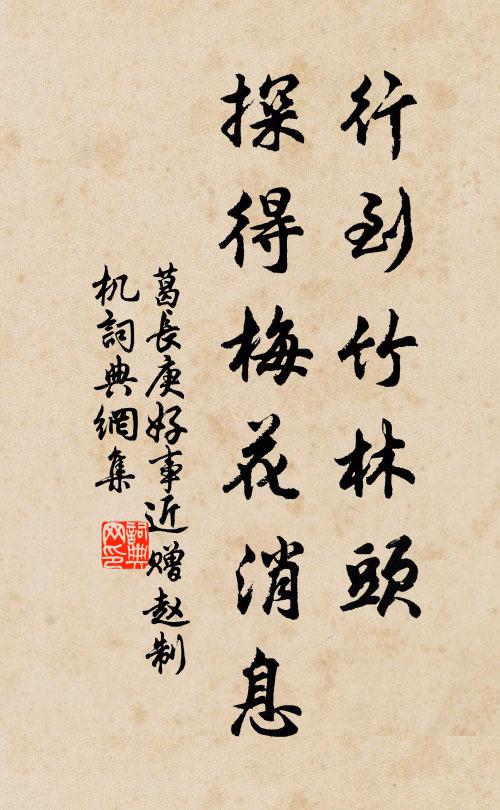 行到竹林頭
探得梅花消息
葛長庚好事近赠赵制
机詞典網集
詞典
网印